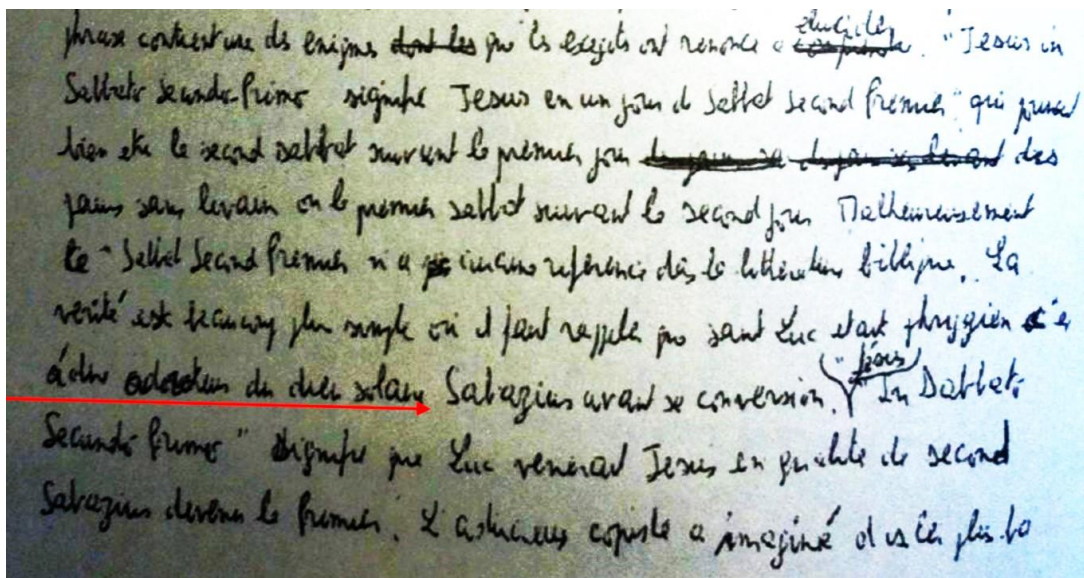 phrase contient une des enigmes ~~dont les~~ que les exegetes ont renoncé a ~~comprendre~~ elucider. "Jesus in
Sabbato secundo-Primo signifie Jesus en un jour de Sabbat second Premier" qui pouvait
bien etre le second sabbat suivant le premier jour des
pains sans levain ou le premier sabbat suivant le second jour Malheureusement
le "Sabbat Second Premier n'a aucune reference dans la littérature biblique. La
verité est beaucoup plus simple où il faut rappeler que saint Luc etait phrygien
adorateur du dieu solaire Sabazius avant sa conversion. "Jesus In Sabbato
Secundo Primo" signifie que Luc venerait Jesus en qualité de second
Sabazius devenu le Premier. L'astucieux copiste a imaginé